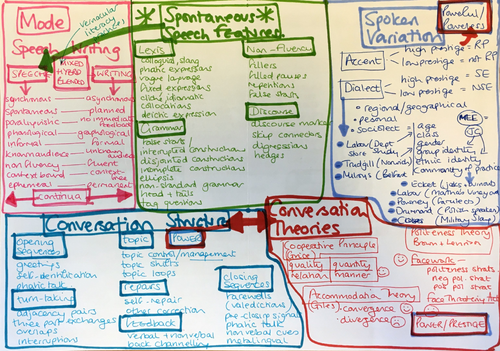 Mode
vernacular
literacy
Speech Writing
SPEECH
MIXED
HYBRID
BLENDED
WRITING
synchronous asynchronous
spontaneous planned
paralinguistic no immediate feedback
phonological graphological
informal formal
known audience unknown audience
non-fluency fluent
context bound context free
ephemeral permanent
Continua
Spontaneous
Speech Features
Lexis
colloquial, slang
phatic expressions
vague language
fixed expressions
idiomatic
collocations
deictic expression
Grammar
false starts
interrupted constructions
disjointed constructions
incomplete constructions
ellipsis
non-standard grammar
head + tails
tag questions
Non-Fluency
fillers
filled pauses
repetitions
false starts
Discourse
discourse markers
skip connectors
digressions
hedges
Spoken
Variation
Powerful/
Powerless
Accent
high prestige = RP
low prestige = not RP
Dialect
high prestige = SE
low prestige = NSE
regional/geographical
personal
sociolect
age
class
gender
group identity
ethnic identity
community of practice
MEE
Labov (Dept Store Study)
Trudgill (Norwich)
Milroys (Belfast)
Eckert (Jocks + Burnouts)
Labov (Martha's Vineyard)
Powney (Farnlects)
Drummond (Polish speakers)
(Military Slang)
Conversation Structure
opening
sequences
greetings
self-identification
phatic talk
turn-taking
adjacency pairs
three part exchanges
overlaps
interruptions
topic
POWER
topic control/management
topic shifts
topic loops
repairs
self-repair
other correction
feedback
verbal + nonverbal
back channelling
closing
sequences
farewells
(valedictions)
pre-closing signals
phatic talk
nonverbal cues
metalingual
Conversation
Theories
Cooperative Principle
(Grice)
quality quantity
relation manner
Accommodation Theory
(Giles)
convergence
divergence
Politeness Theory
Brown + Levinson
Facework
politeness strats
neg pol. strat
pos pol strat
Face Threatening Act
POWER/PRESTIGE